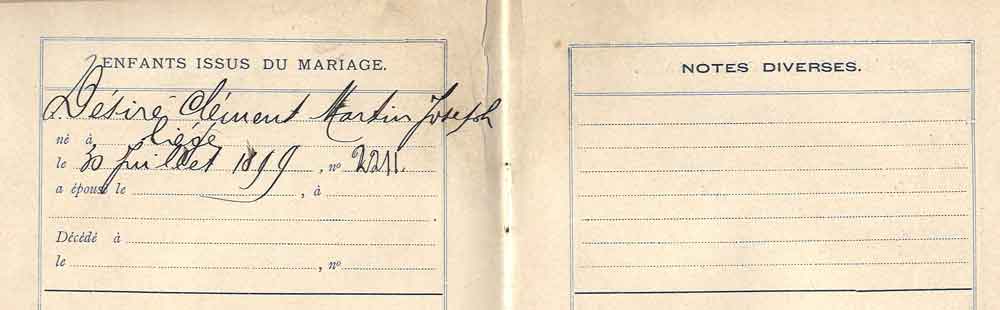 ENFANTS ISSUS DU MARIAGE.
Désiré Clément Martin Joseph
né à Liége
le 30 Juillet 1899, nº 2211.
a épousé le , à
.
Décédé à
le , nº
NOTES DIVERSES.